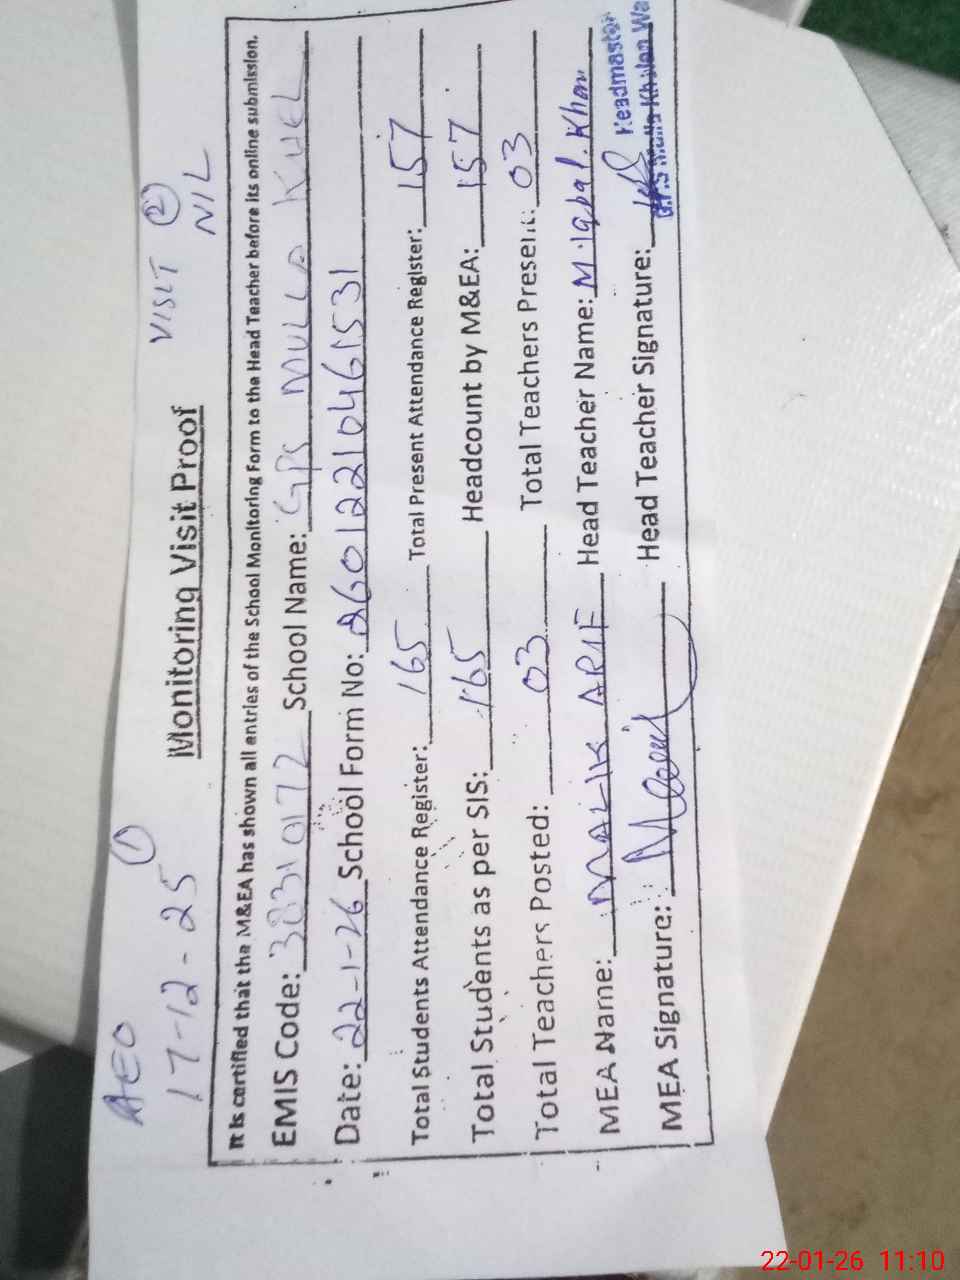 AEO ①
17-12-25
VISIT ②
NIL
Monitoring Visit Proof
It is certified that the M&EA has shown all entries of the School Monitoring Form to the Head Teacher before its online submission.
EMIS Code: 38310172 School Name: GPS MULLA KHEL
Date: 22-1-26 School Form No: 26012210461531
Total Students Attendance Register: 165 Total Present Attendance Register: 157
Total Students as per SIS: 165 Headcount by M&EA: 157
Total Teachers Posted: 03 Total Teachers Present: 03
MEA Name: MALIK ARIF Head Teacher Name: M.Iqbal.Khan
MEA Signature: Head Teacher Signature:
Headmaster
G.P.S Mulla Khelan Wa
22-01-26 11:10